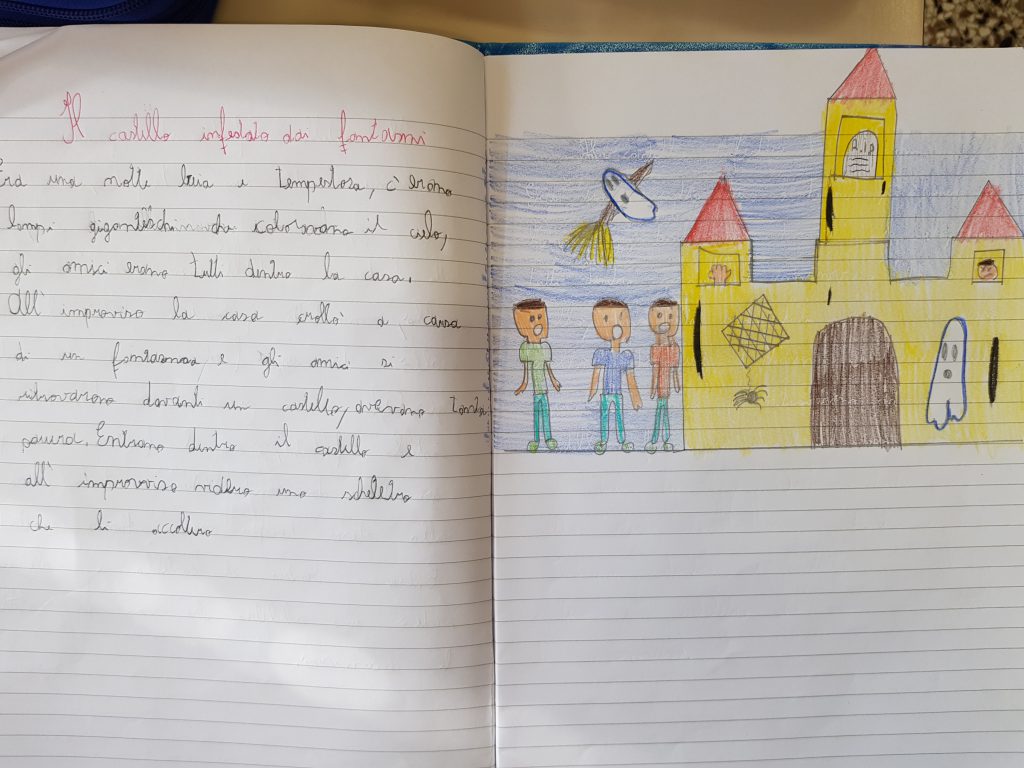 Il castello infestato dai fantasmi
Era una notte buia e tempestosa, c'erano
lampi che coloravano il cielo,
gli amici erano tutti dentro la casa.
All'improvviso la casa crollò a causa
di un fantasma e gli amici si
ritrovarono davanti un castello, avevano tanta
paura. Entrano dentro il castello e
all'improvviso videro uno scheletro
che li
R.i.p